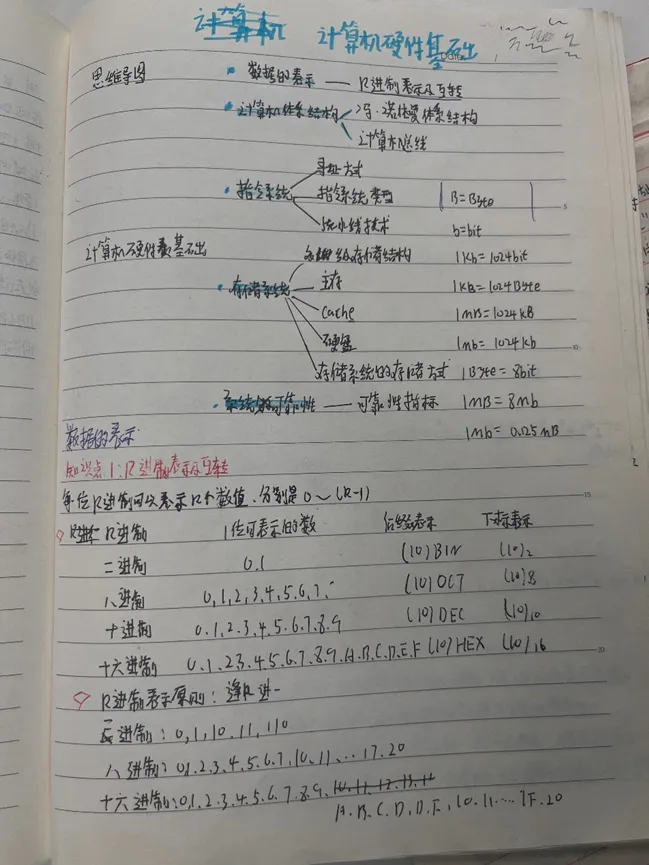 计算机硬件基础
思维导图
数据的表示 — R进制表示及互转
计算机体系结构
冯·诺依曼体系结构
计算机总线
指令系统
寻址方式
指令系统类型
流水线技术
B=Byte
b=bit
计算机硬件基础
存储系统
级存储结构
主存
Cache
硬盘
存储系统的存储方式
1Kb=1024bit
1KB=1024Byte
1MB=1024KB
1Mb=1024Kb
1Byte=8bit
1MB=8Mb
1Mb=0.125MB
系统的可靠性 — 可靠性指标
数据的表示
知识点1:R进制表示及互转
每位R进制可以表示R个数值,分别是0~(R-1)
R进制 1位可表示的数 后缀表示 下标表示
二进制 0.1 (10)BIN (10)2
八进制 0,1,2,3,4,5,6,7 (10)OCT (10)8
十进制 0.1.2.3.4.5.6.7.8.9 (10)DEC (10)10
十六进制 0.1.2.3.4.5.6.7.8.9.A.B.C.D.E.F (10)HEX (10)16
R进制表示原则:逢R进一
二进制:0,1,10.11,110
八进制:0,1.2.3.4.5.6.7,10,11...17.20
十六进制:0.1.2.3.4.5.6.7.8.9.10.11.12.13.14
A.B.C.D.D.F,10.11...1F.20